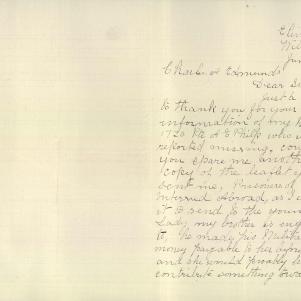 Charles A Edmunds
Dear Si
Just a
to thank you for your
information of my b
1720 Pte A E Mills who i
reported missing, cou
you spare me, anoth
copy of the leaflet y
sent me, Prisoners o
interned abroad, as i
it to send to the youn
Lady, my brother is eng
to, he made his Milita
money payable to her
and she would possibly
contribute something towa